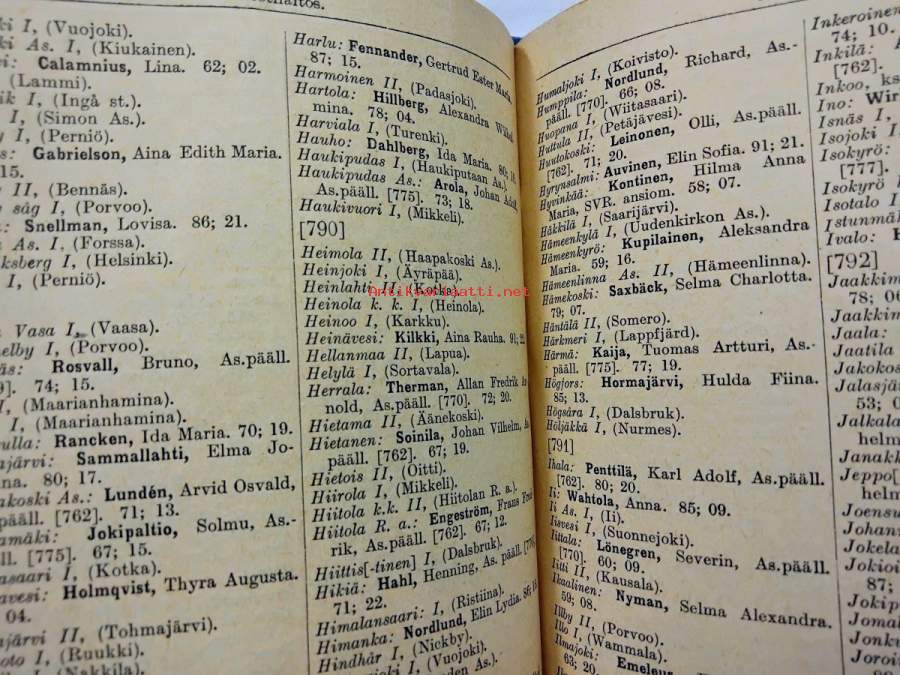 ki I, (Vuojoki).
ki As. I, (Kiukainen).
Calamnius, Lina. 62; 02.
(Lammi).
ik I, (Ingå st.).
I, (Simon As.).
I, (Perniö).
Gabrielson, Aina Edith Maria.
15.
II, (Bennäs).
såg I, (Porvoo).
Snellman, Lovisa. 86; 21.
As. I, (Forssa).
ksberg I, (Helsinki).
I, (Perniö).
Vasa I, (Vaasa).
elby I, (Porvoo).
Rosvall, Bruno, As.pääll.
74; 15.
I, (Maarianhamina).
I, (Maarianhamina).
ulla: Rancken, Ida Maria. 70; 19.
ajärvi: Sammallahti, Elma Jo-
na. 80; 17.
akoski As.: Lundén, Arvid Osvald,
pääll. [762]. 71; 13.
amäki: Jokipaltio, Solmu, As.-
ll. [775]. 67; 15.
asaari I, (Kotka).
avesi: Holmqvist, Thyra Augusta.
04.
ajärvi II, (Tohmajärvi).
oto I, (Ruukki).
I, (Nakkila).
Harlu: Fennander, Gertrud Ester Maria.
87; 15.
Harmoinen II, (Padasjoki).
Hartola: Hillberg, Alexandra Wilhel
mina. 78; 04.
Harviala I, (Turenki).
Hauho: Dahlberg, Ida Maria. 80;
Haukipudas I, (Haukiputaan As.).
Haukipudas As.: Arola, Johan Adolf
As.pääll. [775]. 73; 18.
Haukivuori I, (Mikkeli).
[790]
Heimola II, (Haapakoski As.).
Heinjoki I, (Äyräpää).
Heinlahti II, (Kotka).
Heinola k. k. I, (Heinola).
Heinoo I, (Karkku).
Heinävesi: Kilkki, Aina Rauha. 91; 22
Hellanmaa II, (Lapua).
Helylä I, (Sortavala).
Herrala: Therman, Allan Fredrik
nold, As.pääll. [770]. 72; 20.
Hietama II, (Äänekoski).
Hietanen: Soinila, Johan Vilhelm,
pääll. [762]. 67; 19.
Hietois II, (Oitti).
Hiirola I, (Mikkeli).
Hiitola k.k. II, (Hiitolan R. a.).
Hiitola R. a.: Engeström, Frans
rik, As.pääll. [762]. 67; 12.
Hiittis[-tinen] I, (Dalsbruk).
Hikiä: Hahl, Henning, As. pääll.
71; 22.
Himalansaari: I, (Ristiina).
Himanka: Nordlund, Elin Lydia. 86;
Hindhår I, (Nickby).
I, (Vuojoki).
As.).
Antikvariaatti.net
Humaljoki I, (Koivisto).
Humppila: Nordlund, Richard, As.-
pääll. [770]. 66; 08.
Huopana I, (Wiitasaari).
Huttula II, (Petäjävesi).
Huutokoski: Leinonen, Olli, As.pääll.
[762]. 71; 20.
Hyrynsalmi: Auvinen, Elin Sofia. 91; 21.
Hyvinkää: Kontinen, Hilma Anna
Maria, SVR. ansiom. 58; 07.
Häkkilä I, (Saarijärvi).
Hämeenkylä I, (Uudenkirkon As.).
Hämeenkyrö: Kupilainen, Aleksandra
Maria. 59; 16.
Hämeenlinna As. II, (Hämeenlinna).
Hämekoski: Saxbäck, Selma Charlotta.
79; 07.
Häntälä II, (Somero).
Härkmeri I, (Lappfjärd).
Härmä: Kaija, Tuomas Artturi, As.-
pääll. [775]. 77; 19.
Högfors: Hormajärvi, Hulda Fiina.
85; 13.
Högsåra I, (Dalsbruk).
Höljäkkä I, (Nurmes).
[791]
Ihala: Penttilä, Karl Adolf, As.pääll.
[762]. 80; 20.
Ii: Wahtola, Anna. 85; 09.
Ii As. I, (Ii).
Iisvesi I, (Suonnejoki).
Iittala: Lönegren, Severin, As.pääll.
[770]. 60; 09.
Iitti II, (Kausala).
Ikaalinen: Nyman, Selma Alexandra.
59; 08.
Illby II, (Porvoo).
Illo I, (Wammala).
Ilmajoki: Emeleus
63; 20.
Inkeroinen
74; 10.
Inkilä:
[762].
Inkoo, ks
Ino: Wir
Isnäs I,
Isojoki I
Isokyrö:
[777].
Isokyrö
Isotalo I
Istunmäk
Ivalo:
[792]
Jaakkim
78; 06
Jaakkim
Jaala:
Jaatila
Jakokos
Jalasjä
53; 0
Jalkala
helm
Janakk
Jeppo[
helm
Joensu
Johan
Jokela
Jokioi
87;
Jokip
Jomal
Jonku
Joroin